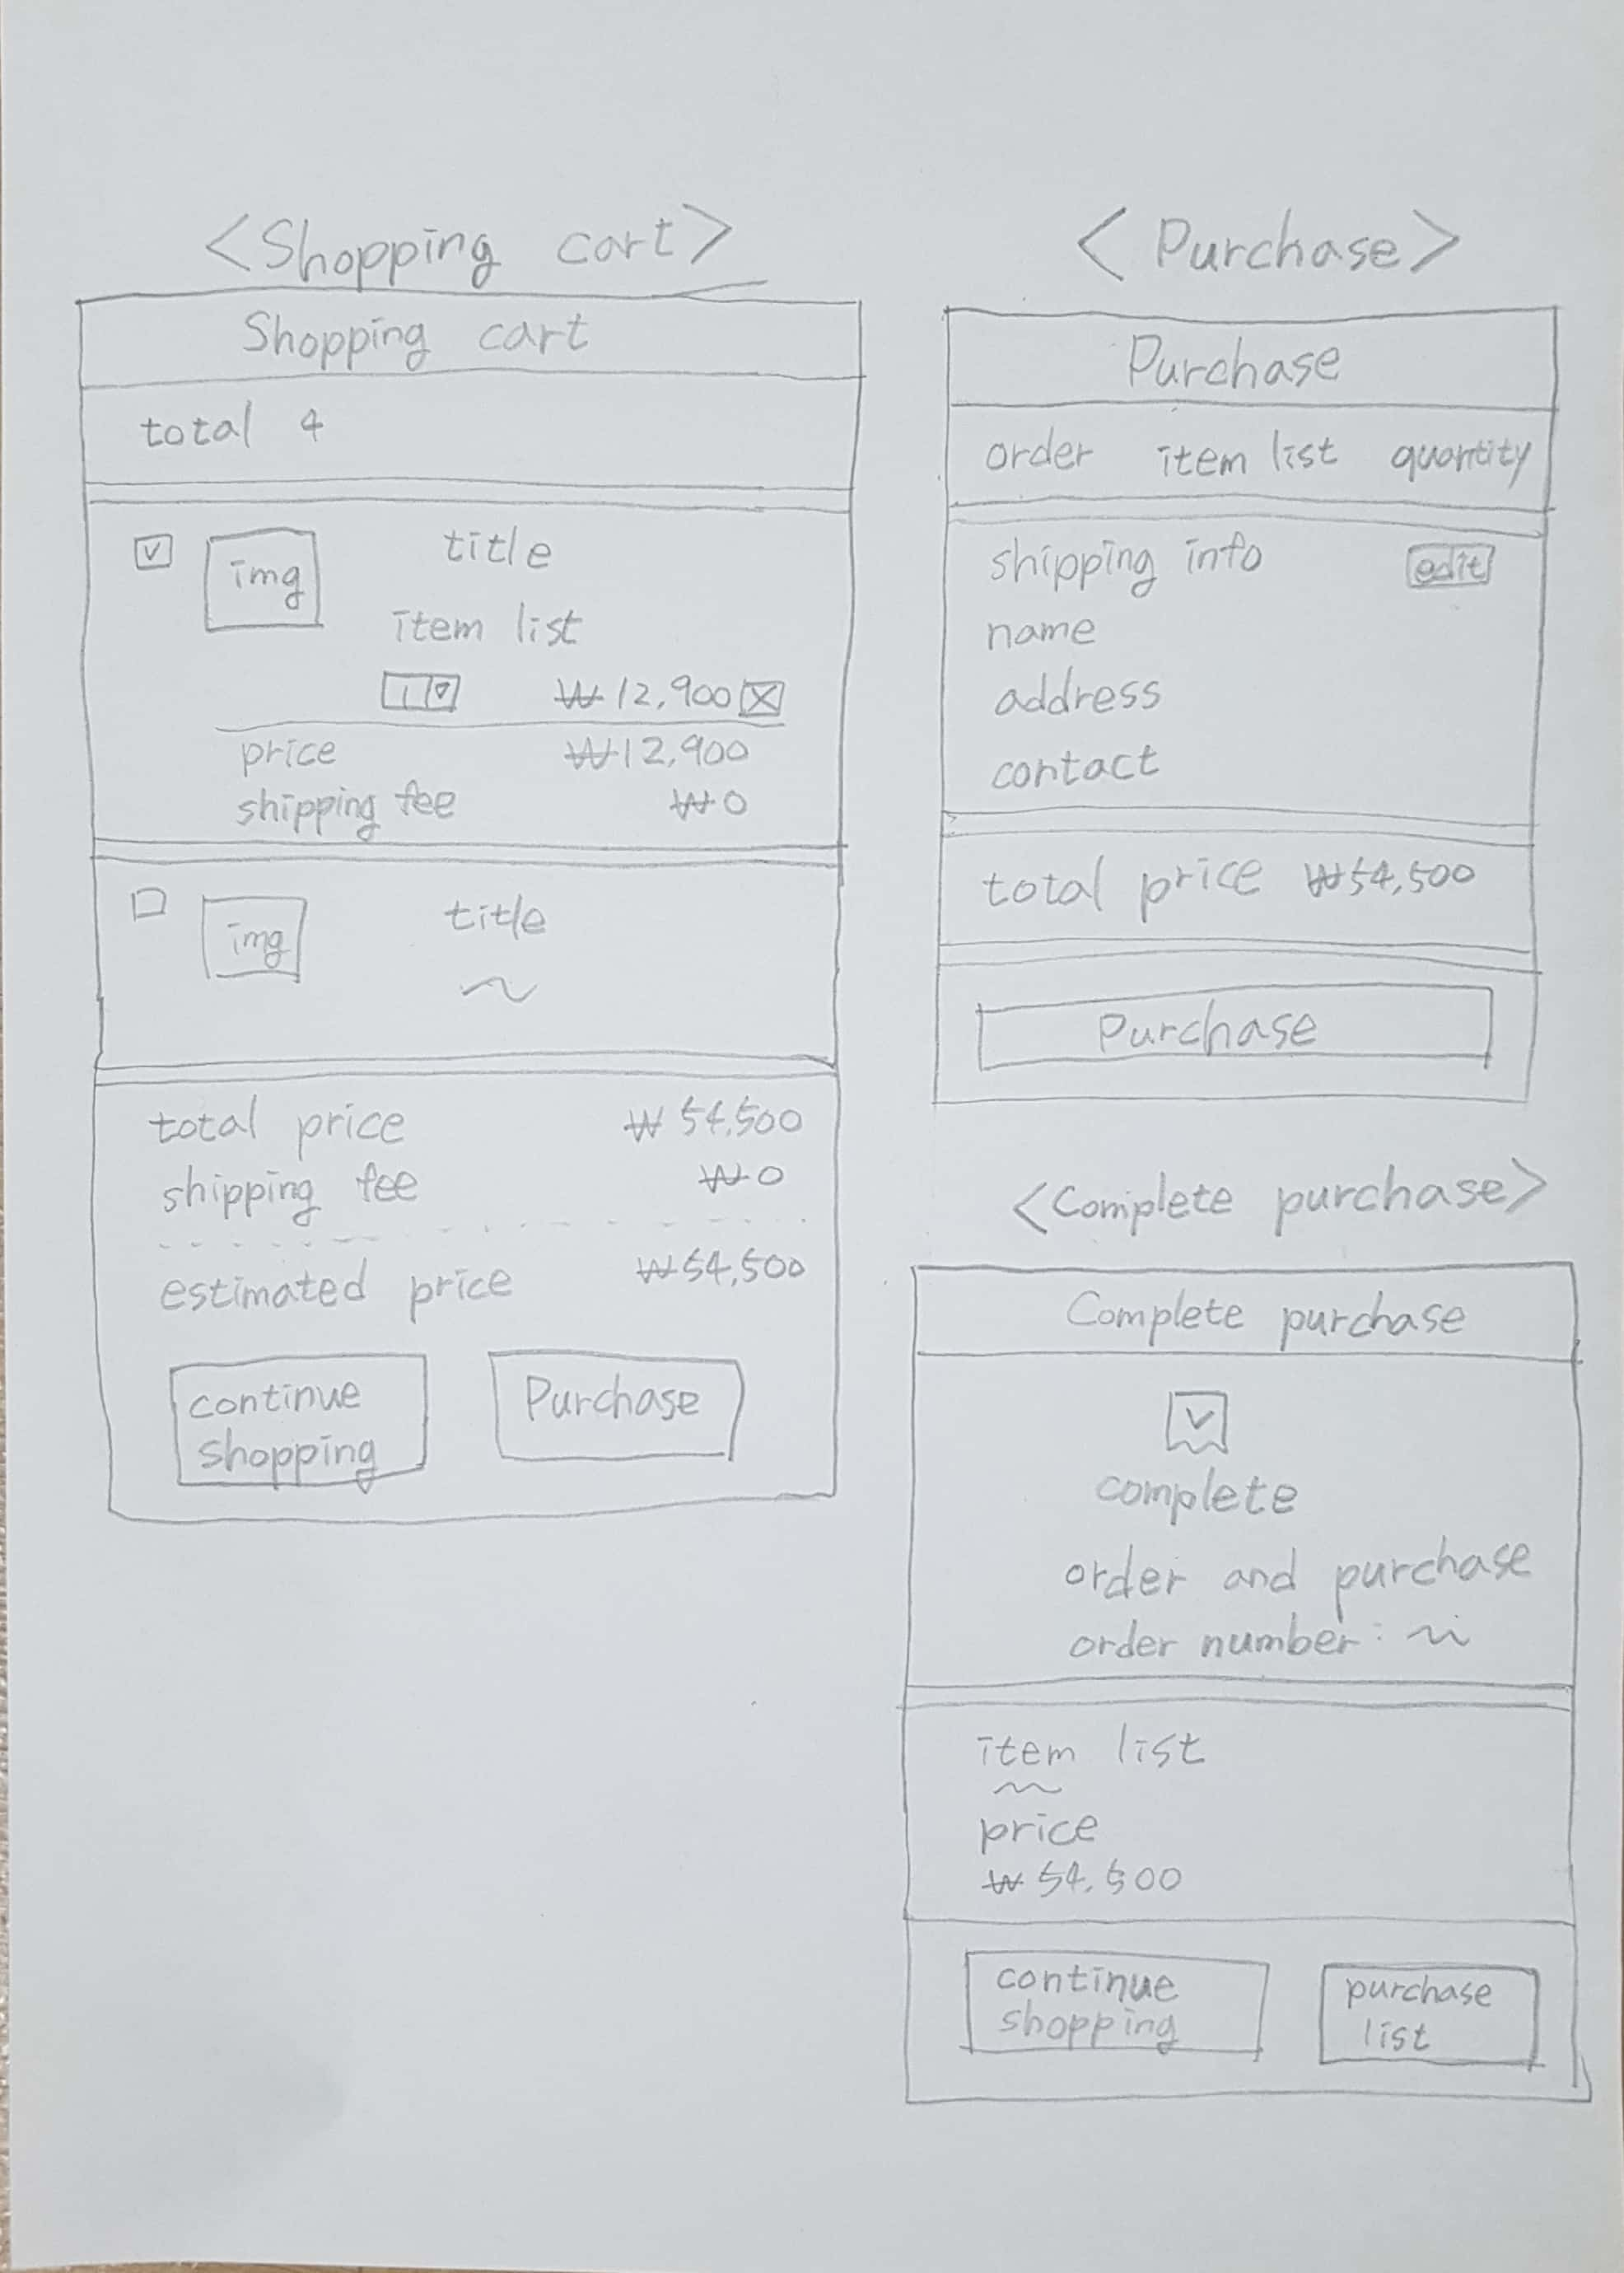 <Shopping cart>
Shopping cart
total 4
img
title
item list
1
₩12,900
price ₩12,900
shipping fee ₩0
img
title
total price ₩54,500
shipping fee ₩0
estimated price ₩54,500
continue
shopping
Purchase
<Purchase>
Purchase
order item list quantity
shipping info edit
name
address
contact
total price ₩54,500
Purchase
<Complete purchase>
Complete purchase
complete
order and purchase
order number:
item list
price
₩54,500
continue
shopping
purchase
list